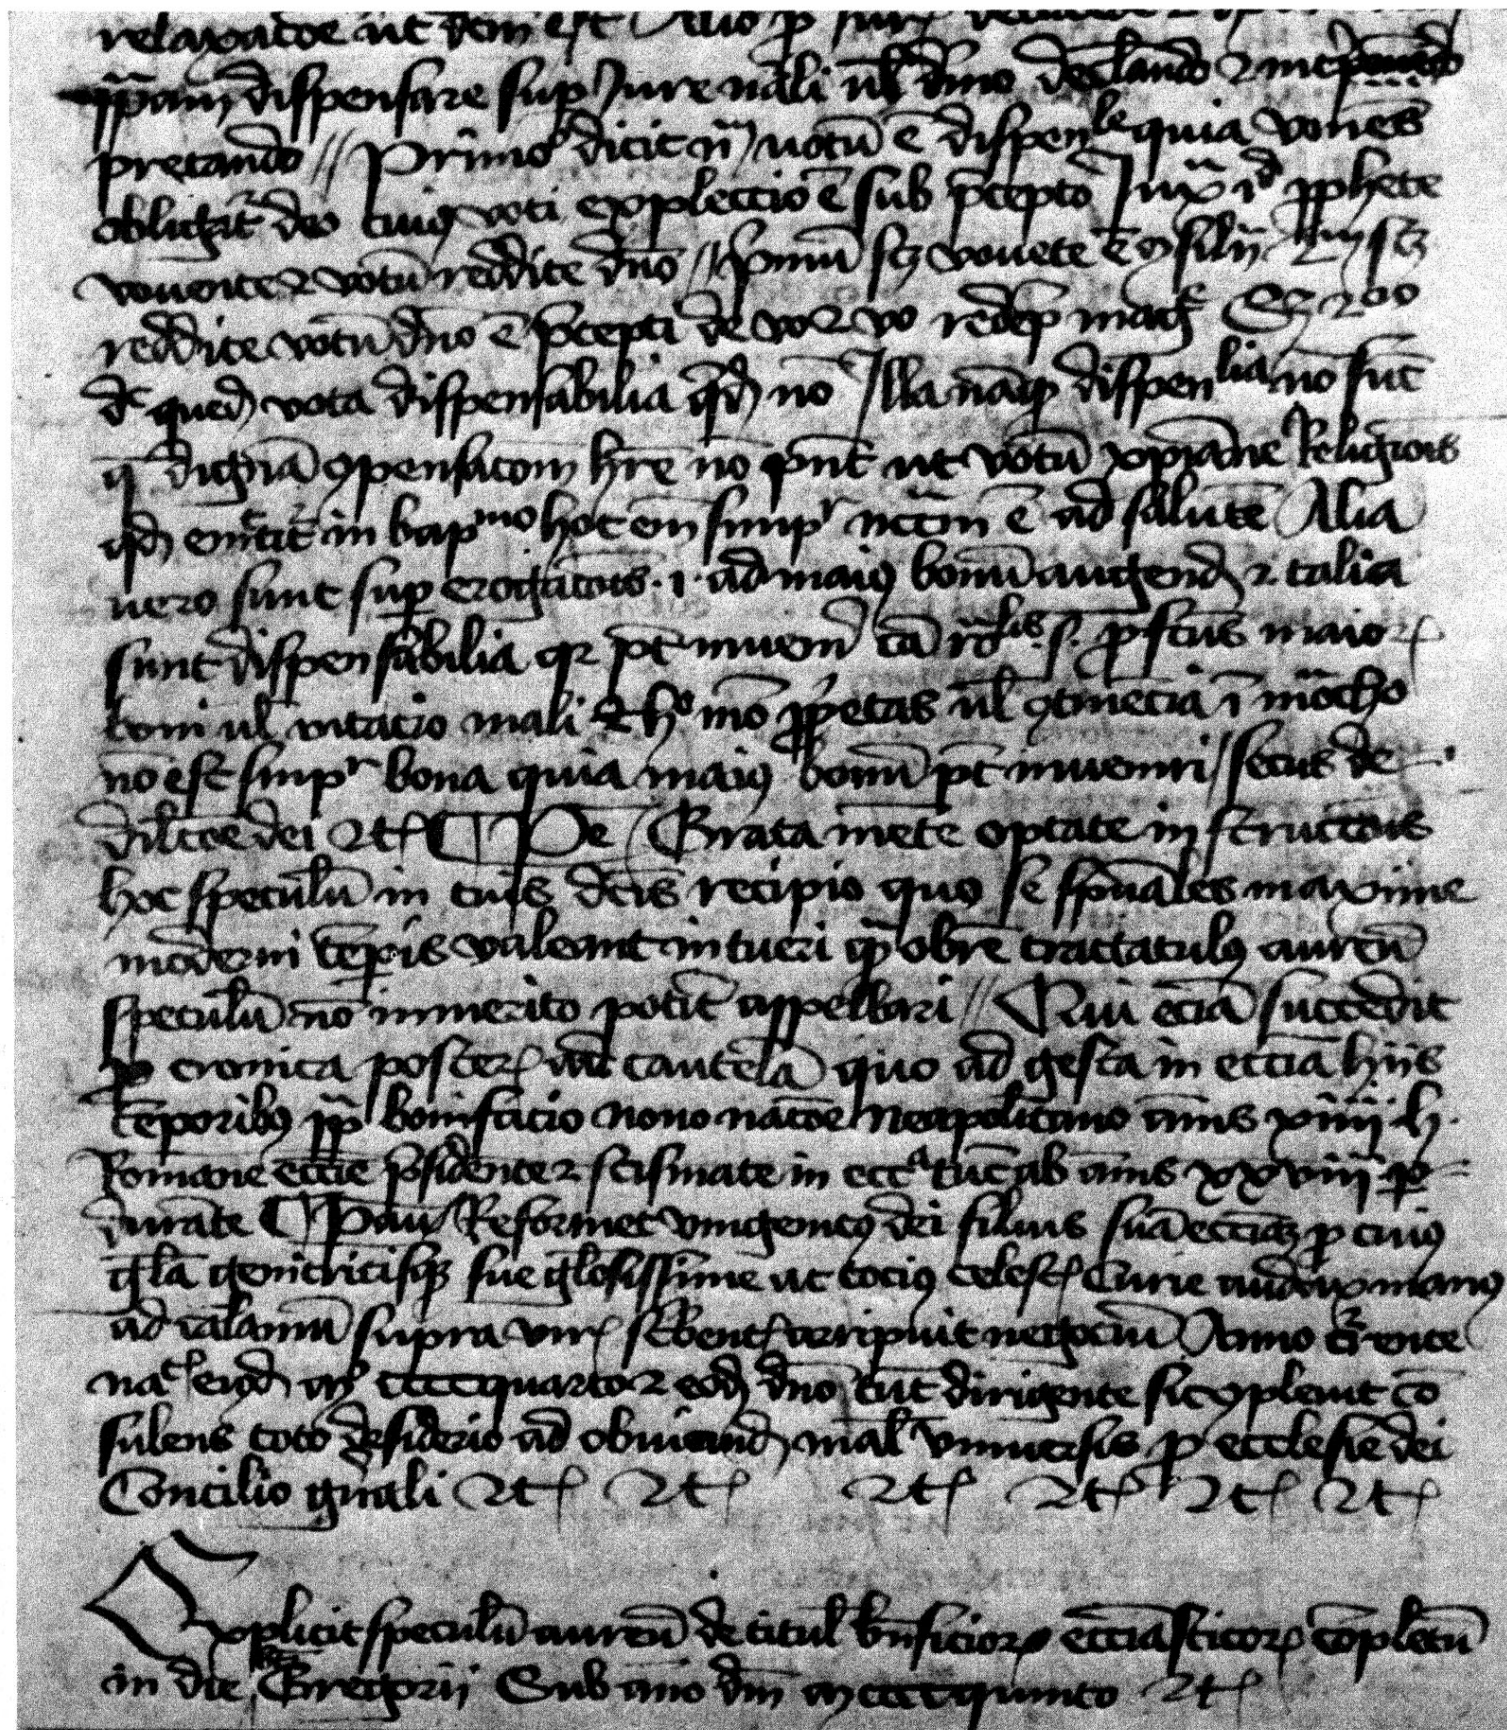 relaxacōe ut dcm̄ est Alio
pp̄am dispensare sup iure nāli ul dīno declando ⁊ int̄
pretando // Primo dicit n̄ votū ē dispenle quia vovēs
obligat̄ deo cuiꝰ voti explectio ē sub p̄cepto Iux id ꝓphete
vovete ⁊ votū reddite dn̄o // Pmū scꝫ vovete ē ꝯsilij scꝫ
reddite votū dn̄o ē p̄cepti de vo ⁊ vo redemp mag Sꝫ
dc̄ quedā vota dispensabilia qdā nō Illa nāqꝫ dispenlia nō sūt
q̄ dignā ꝯpensacōm hr̄e nō pn̄t ut votū xp̄iane Religiōis
qd emittit̄ in bapmo hoc em̄ simpr ncc̄m ē ad salutē Alia
vero sunt sup erogatōis .i. ad maiꝰ bonū augend ⁊ talia
sunt dispensabilia qꝛ pt̄ inueni cā rōlis .s. ꝓfctus maioꝝ
boni ul vitacio mali Et hº mō ꝓprietas ul ꝯtinēcia ī mōcho
nō est simpr bona quia maiꝰ bonū pt̄ inueniri // secus de
dilcōe dei ⁊c̄ ¶ Pe Grata mēte optate instructōis
hoc speculū in tuis dc̄is recipio quo se spūales maxime
moderni tēpis valeant intueri qp̄ obrē tractatulꝰ aureū
speculū nō inmerito potit appellari // Cui eciā succedit
cronica posteroꝝ ad cautelā quo ad gesta in ecc̄ia hijs
tēporibꝰ pp̄ bonifacio nono nac̄oe Neapolitano annis xiiij h
Romane ecc̄ie p̄sidente ⁊ scismate in ecca tūc ab annis xxviij
durāte ¶ Pau Reformet vnigenitꝰ dei filius suā ecc̄iaꝫ ꝓ cuiꝰ
gl̄a genitricisqꝫ sue glosissime ac tociꝰ celestꝭ Curie audax manꝰ
ad calamū supra virꝭ scbentꝭ arripuit negociū Anno cur̄ente
natꝭ eiꝰd mº ccccquarto ⁊ eod dn̄o cūc̄ dirigente sic ꝯpleuit cō
sulens toto desiderio ad obuiand malꝭ vniuersis ꝓ ecclesie dei
Concilio gn̄ali ⁊c̄ ⁊c̄ ⁊c̄ ⁊c̄ ⁊c̄ ⁊c̄
Explicit speculū aureū de titulꝭ bn̄ficioꝝ ecc̄iasticoꝝ cōpletū
in die Gregorij Sub anno dn̄i mccccquinto ⁊c̄